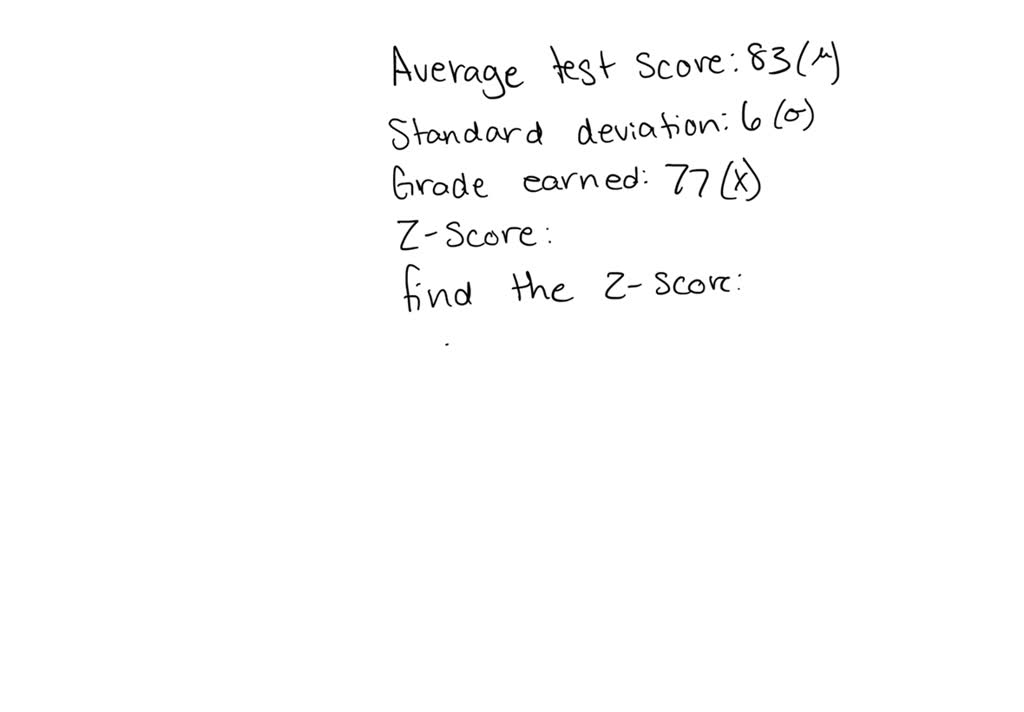 Average test score: 83 (μ)
Standard deviation: 6 (σ)
Grade earned: 77 (x)
Z-Score:
find the z-score: